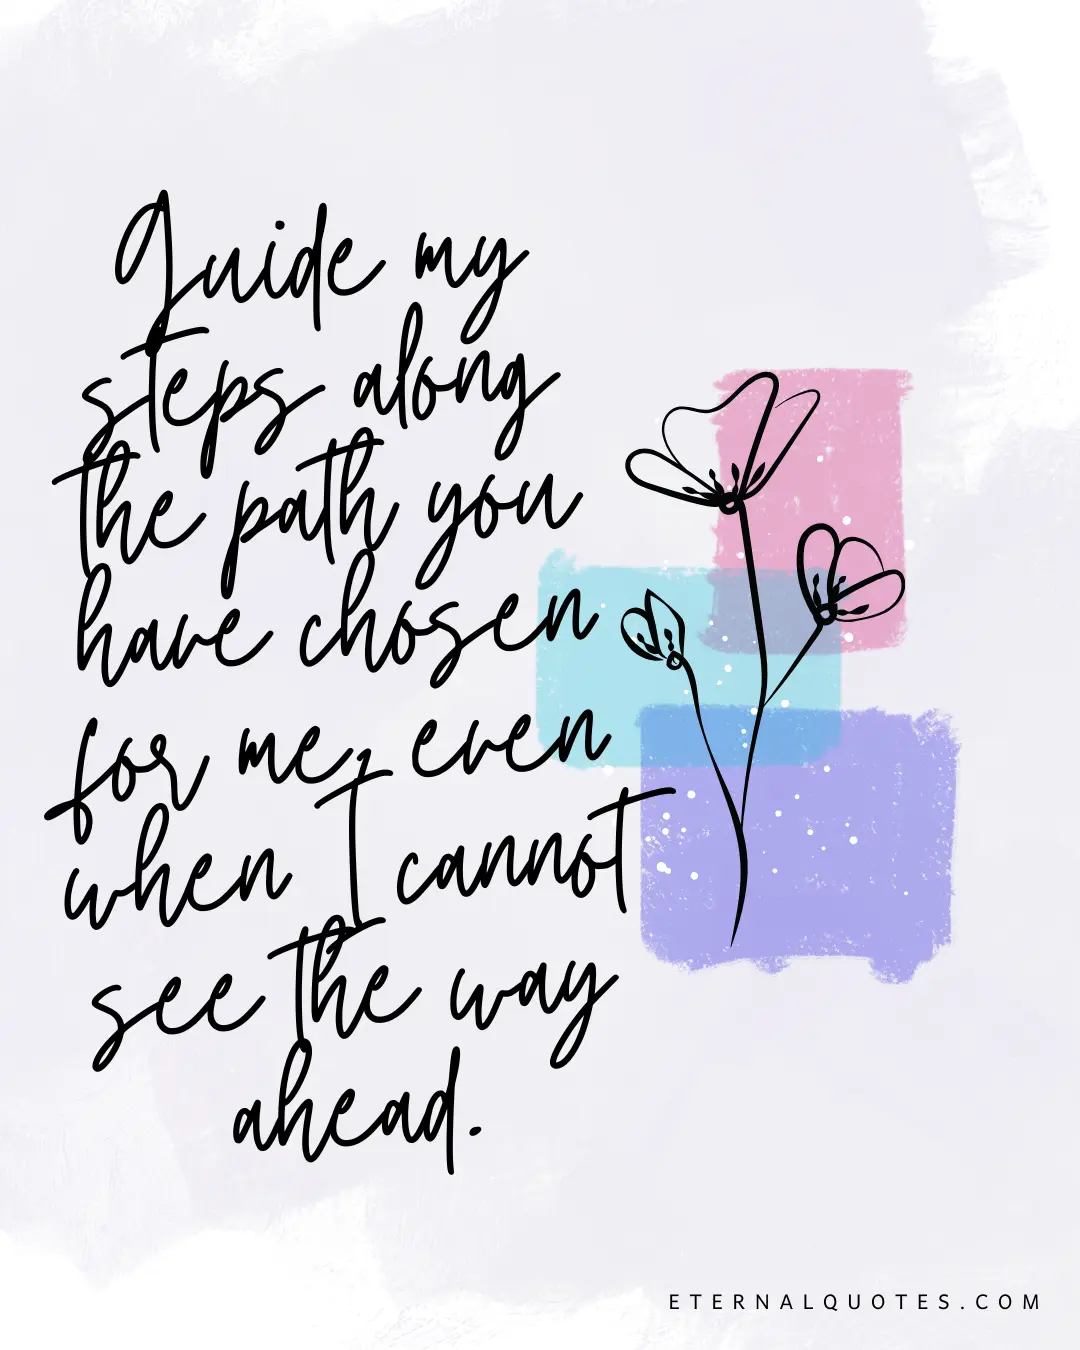 Guide my
steps along
the path you
have chosen
for me, even
when I cannot
see the way
ahead.
ETERNALQUOTES.COM